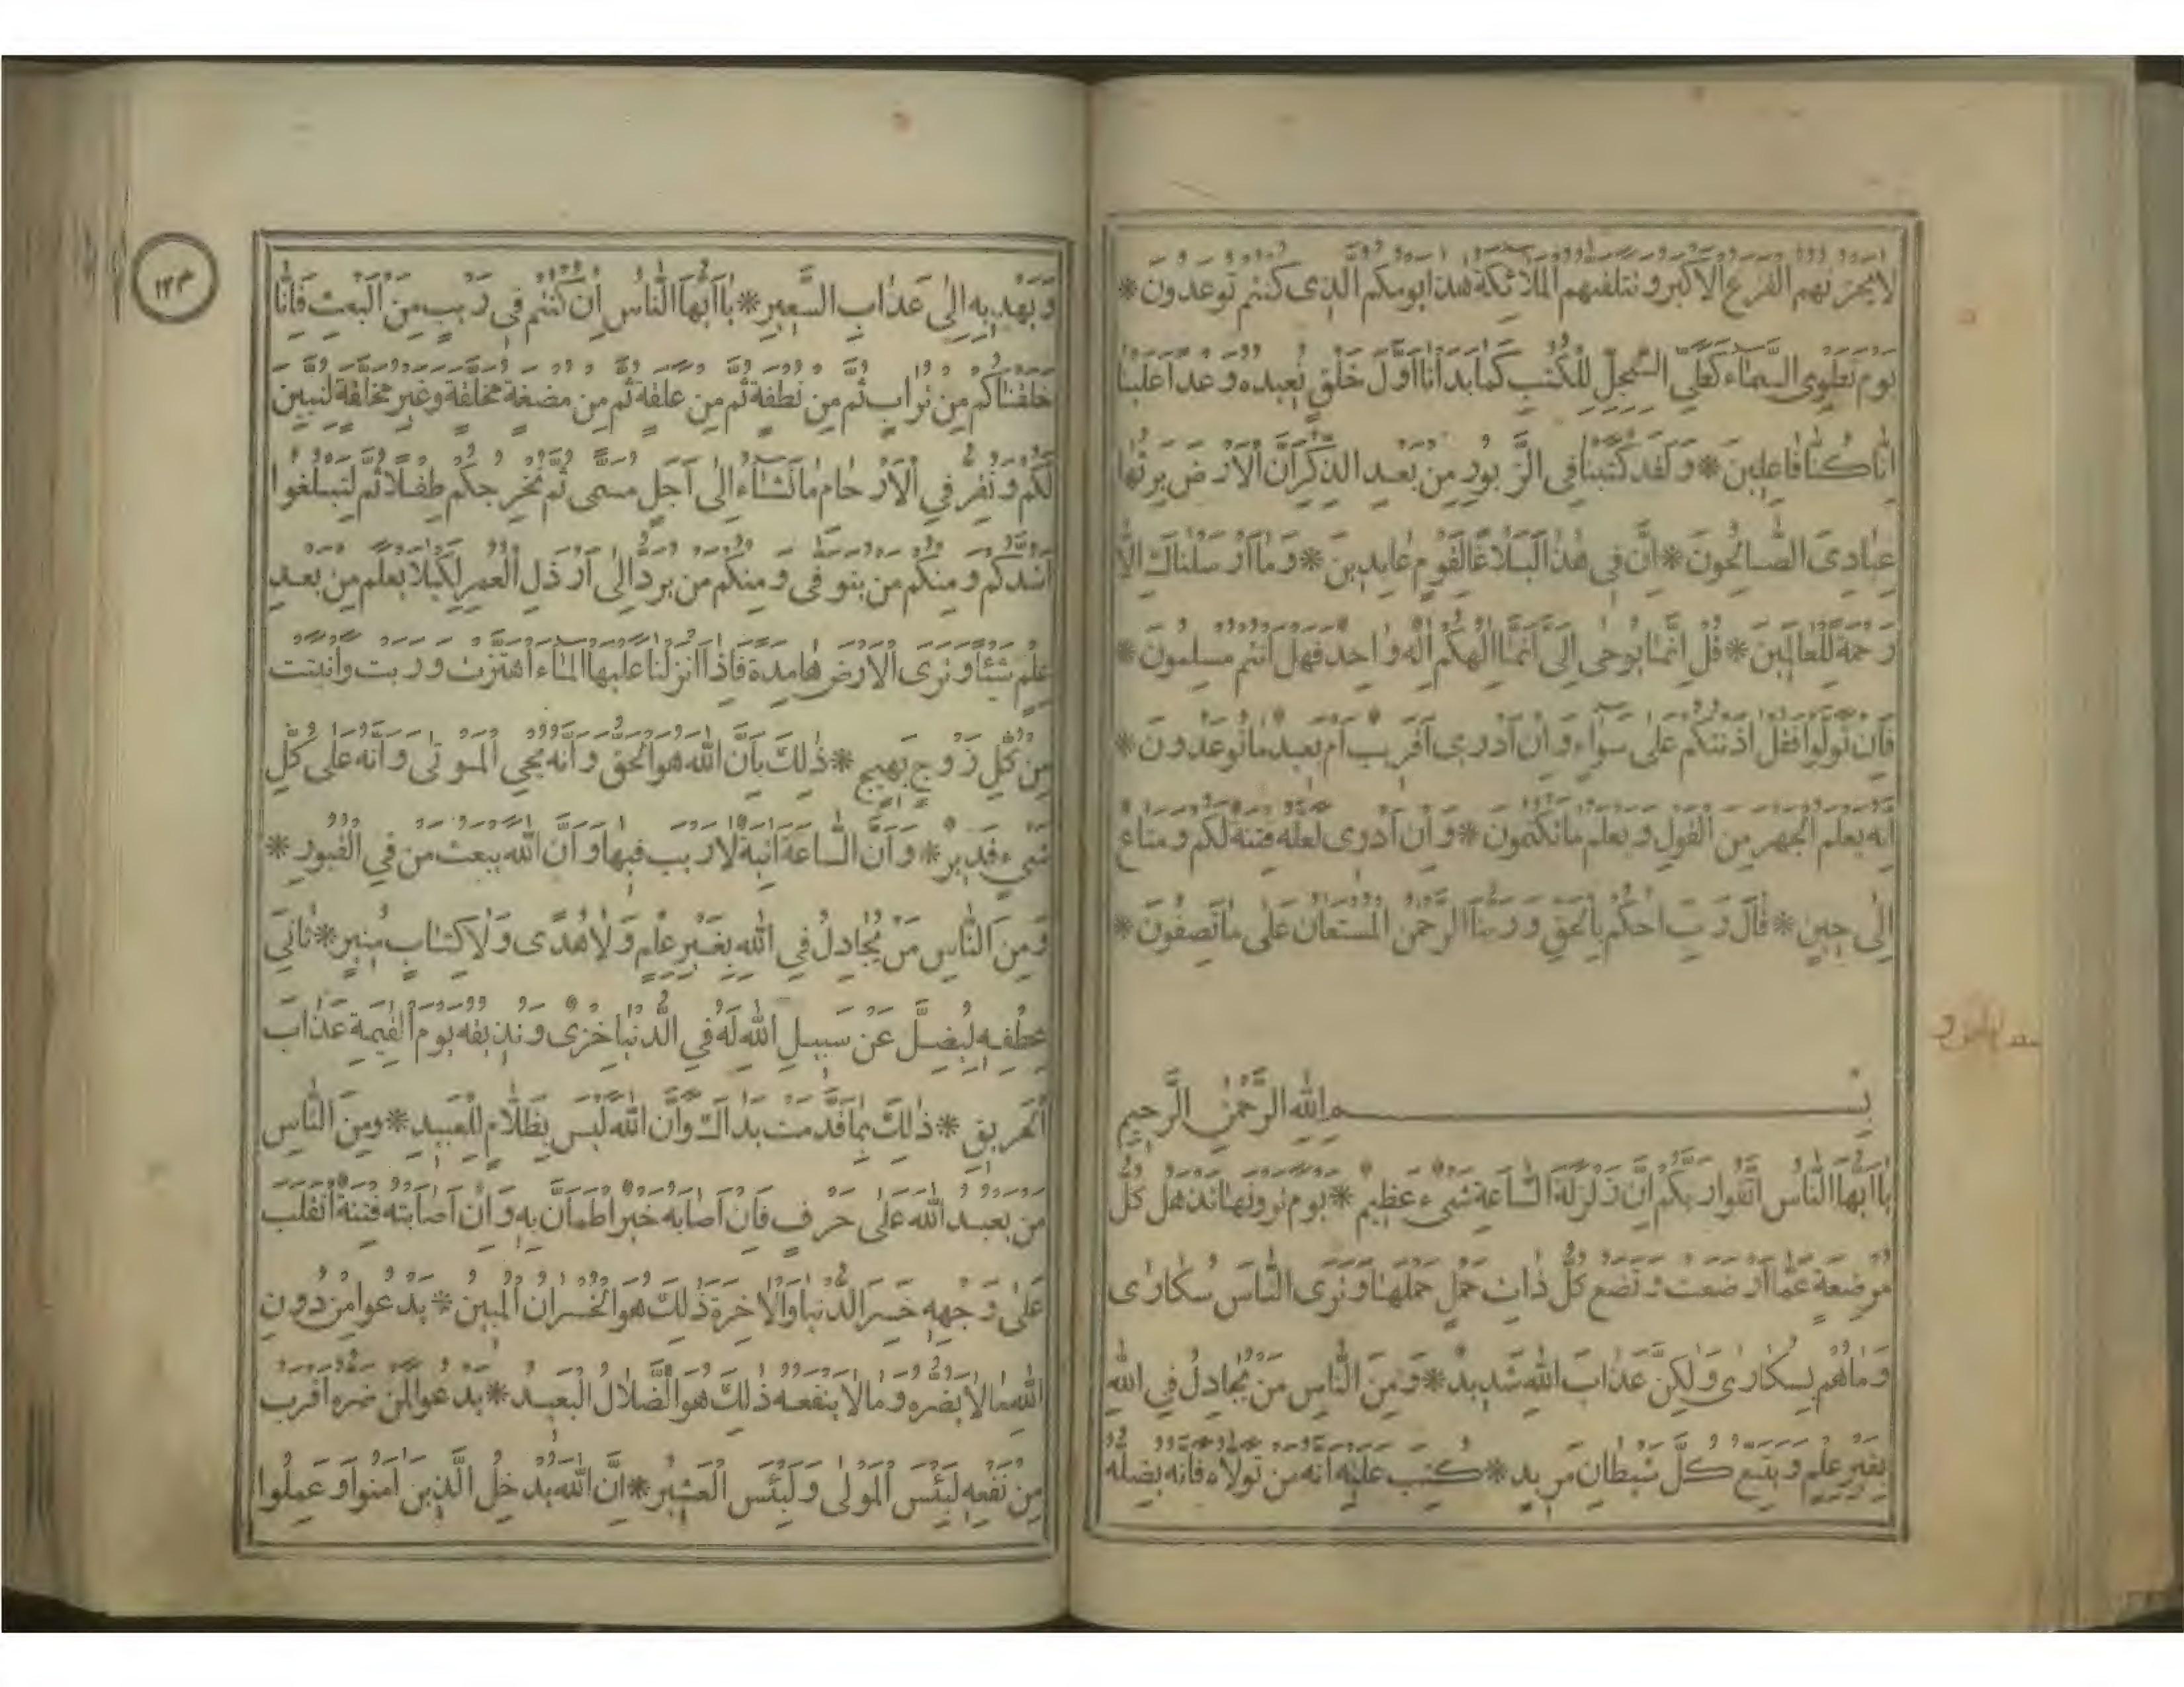 لَا يَحْزُنُهُمُ الْفَزَعُ الْأَكْبَرُ وَتَتَلَقّٰيهُمُ الْمَلَائِكَةُ هٰذَا يَوْمُكُمُ الَّذِى كُنْتُمْ تُوعَدُونَ *
يَوْمَ نَطْوِى السَّمَاءَ كَطَىِّ السِّجِلِّ لِلْكُتُبِ كَمَا بَدَأْنَا أَوَّلَ خَلْقٍ نُعِيدُهُ وَعْدًا عَلَيْنَا
اِنَّا كُنَّا فَاعِلِينَ * وَلَقَدْ كَتَبْنَا فِى الزَّبُورِ مِنْ بَعْدِ الذِّكْرِ أَنَّ الْأَرْضَ يَرِثُهَا
عِبَادِىَ الصَّالِحُونَ * اِنَّ فِى هٰذَا لَبَلَاغًا لِقَوْمٍ عَابِدِينَ * وَمَا أَرْسَلْنَاكَ اِلَّا
رَحْمَةً لِلْعَالَمِينَ * قُلْ اِنَّمَا يُوحٰى اِلَىَّ أَنَّمَا اِلٰهُكُمْ اِلٰهٌ وَاحِدٌ فَهَلْ أَنْتُمْ مُسْلِمُونَ *
فَاِنْ تَوَلَّوْا فَقُلْ اٰذَنْتُكُمْ عَلٰى سَوَاءٍ وَاِنْ أَدْرِى أَقَرِيبٌ أَمْ بَعِيدٌ مَا تُوعَدُونَ *
اِنَّهُ يَعْلَمُ الْجَهْرَ مِنَ الْقَوْلِ وَيَعْلَمُ مَا تَكْتُمُونَ * وَاِنْ أَدْرِى لَعَلَّهُ فِتْنَةٌ لَكُمْ وَمَتَاعٌ
اِلٰى حِينٍ * قَالَ رَبِّ احْكُمْ بِالْحَقِّ وَرَبُّنَا الرَّحْمٰنُ الْمُسْتَعَانُ عَلٰى مَا تَصِفُونَ *
بِسْمِ اللّٰهِ الرَّحْمٰنِ الرَّحِيمِ
يَا أَيُّهَا النَّاسُ اتَّقُوا رَبَّكُمْ اِنَّ زَلْزَلَةَ السَّاعَةِ شَىْءٌ عَظِيمٌ * يَوْمَ تَرَوْنَهَا تَذْهَلُ كُلُّ
مُرْضِعَةٍ عَمَّا أَرْضَعَتْ وَتَضَعُ كُلُّ ذَاتِ حَمْلٍ حَمْلَهَا وَتَرَى النَّاسَ سُكَارٰى
وَمَا هُمْ بِسُكَارٰى وَلٰكِنَّ عَذَابَ اللّٰهِ شَدِيدٌ * وَمِنَ النَّاسِ مَنْ يُجَادِلُ فِى اللّٰهِ
بِغَيْرِ عِلْمٍ وَيَتَّبِعُ كُلَّ شَيْطَانٍ مَرِيدٍ * كُتِبَ عَلَيْهِ أَنَّهُ مَنْ تَوَلَّاهُ فَأَنَّهُ يُضِلُّهُ
١٢٣
وَيَهْدِيهِ اِلٰى عَذَابِ السَّعِيرِ * يَا أَيُّهَا النَّاسُ اِنْ كُنْتُمْ فِى رَيْبٍ مِنَ الْبَعْثِ فَاِنَّا
خَلَقْنَاكُمْ مِنْ تُرَابٍ ثُمَّ مِنْ نُطْفَةٍ ثُمَّ مِنْ عَلَقَةٍ ثُمَّ مِنْ مُضْغَةٍ مُخَلَّقَةٍ وَغَيْرِ مُخَلَّقَةٍ لِنُبَيِّنَ
لَكُمْ وَنُقِرُّ فِى الْأَرْحَامِ مَا نَشَاءُ اِلٰى أَجَلٍ مُسَمًّى ثُمَّ نُخْرِجُكُمْ طِفْلًا ثُمَّ لِتَبْلُغُوا
أَشُدَّكُمْ وَمِنْكُمْ مَنْ يُتَوَفّٰى وَمِنْكُمْ مَنْ يُرَدُّ اِلٰى أَرْذَلِ الْعُمُرِ لِكَيْلَا يَعْلَمَ مِنْ بَعْدِ
عِلْمٍ شَيْئًا وَتَرَى الْأَرْضَ هَامِدَةً فَاِذَا أَنْزَلْنَا عَلَيْهَا الْمَاءَ اهْتَزَّتْ وَرَبَتْ وَأَنْبَتَتْ
مِنْ كُلِّ زَوْجٍ بَهِيجٍ * ذٰلِكَ بِأَنَّ اللّٰهَ هُوَ الْحَقُّ وَأَنَّهُ يُحْيِى الْمَوْتٰى وَأَنَّهُ عَلٰى كُلِّ
شَىْءٍ قَدِيرٌ * وَأَنَّ السَّاعَةَ اٰتِيَةٌ لَا رَيْبَ فِيهَا وَأَنَّ اللّٰهَ يَبْعَثُ مَنْ فِى الْقُبُورِ *
وَمِنَ النَّاسِ مَنْ يُجَادِلُ فِى اللّٰهِ بِغَيْرِ عِلْمٍ وَلَا هُدًى وَلَا كِتَابٍ مُنِيرٍ * ثَانِىَ
عِطْفِهِ لِيُضِلَّ عَنْ سَبِيلِ اللّٰهِ لَهُ فِى الدُّنْيَا خِزْىٌ وَنُذِيقُهُ يَوْمَ الْقِيٰمَةِ عَذَابَ
الْحَرِيقِ * ذٰلِكَ بِمَا قَدَّمَتْ يَدَاكَ وَأَنَّ اللّٰهَ لَيْسَ بِظَلَّامٍ لِلْعَبِيدِ * وَمِنَ النَّاسِ
مَنْ يَعْبُدُ اللّٰهَ عَلٰى حَرْفٍ فَاِنْ أَصَابَهُ خَيْرٌ اطْمَأَنَّ بِهِ وَاِنْ أَصَابَتْهُ فِتْنَةٌ انْقَلَبَ
عَلٰى وَجْهِهِ خَسِرَ الدُّنْيَا وَالْاٰخِرَةَ ذٰلِكَ هُوَ الْخُسْرَانُ الْمُبِينُ * يَدْعُوا مِنْ دُونِ
اللّٰهِ مَا لَا يَضُرُّهُ وَمَا لَا يَنْفَعُهُ ذٰلِكَ هُوَ الضَّلَالُ الْبَعِيدُ * يَدْعُوا لَمَنْ ضَرُّهُ أَقْرَبُ
مِنْ نَفْعِهِ لَبِئْسَ الْمَوْلٰى وَلَبِئْسَ الْعَشِيرُ * اِنَّ اللّٰهَ يُدْخِلُ الَّذِينَ اٰمَنُوا وَعَمِلُوا